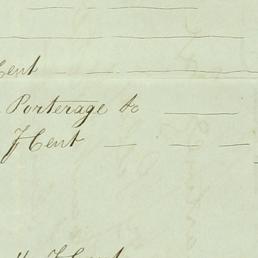 Cent
Porterage &c
℔ Cent
Cent